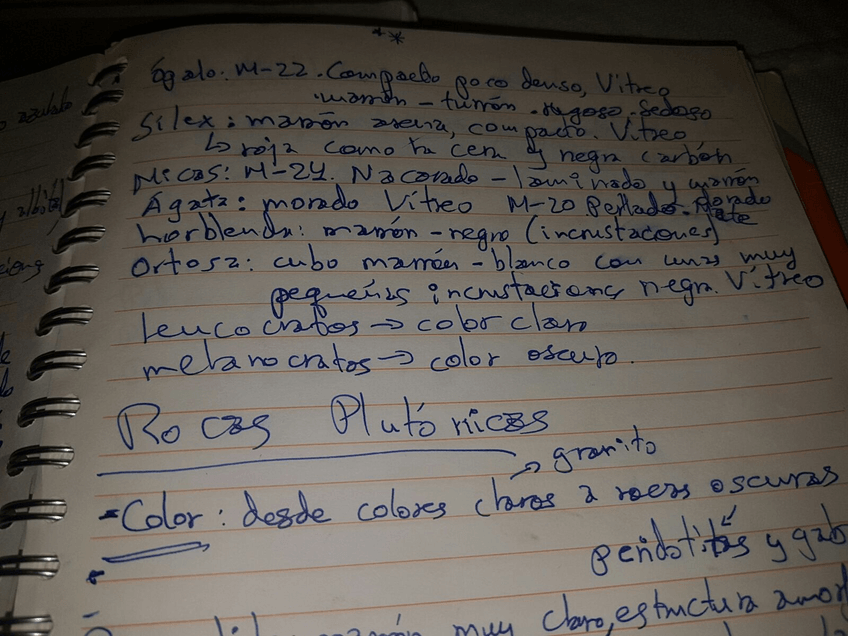 Ógalo: M-22. Compacto poco denso, Vítreo
marrón - turrón. rugoso. Sedoso
Silex: marrón arena, compacto. Vítreo
↳ roja como la cera y negra carbón
Micas: M-24. Nacarado - laminado y marrón
Ágata: morado Vítreo M-20 Perlado. dorado
horblenda: marrón - negro (incrustaciones)
Ortosa: cubo marrón - blanco con unas muy
pequeñas incrustaciones negra. Vítreo
leucocratos → color claro
melanocratos → color oscuro.
Rocas Plutónicas
→ granito
- Color: desde colores claros a rocas oscuras
peridotitas y gab
muy claro, estructura amor